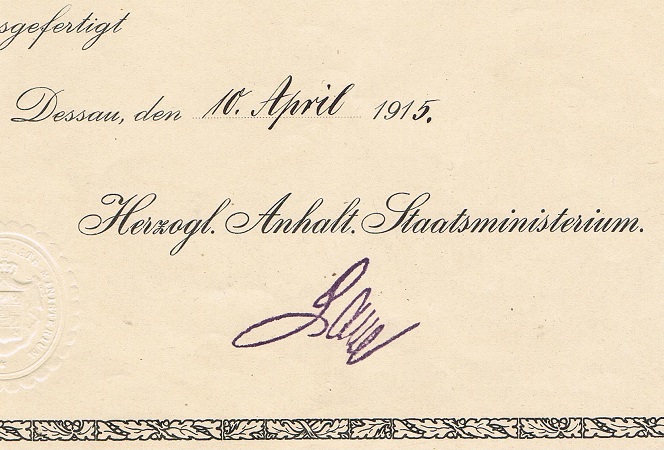 sgefertigt
Dessau, den 10. April 1915.
Herzogl. Anhalt. Staatsministerium.